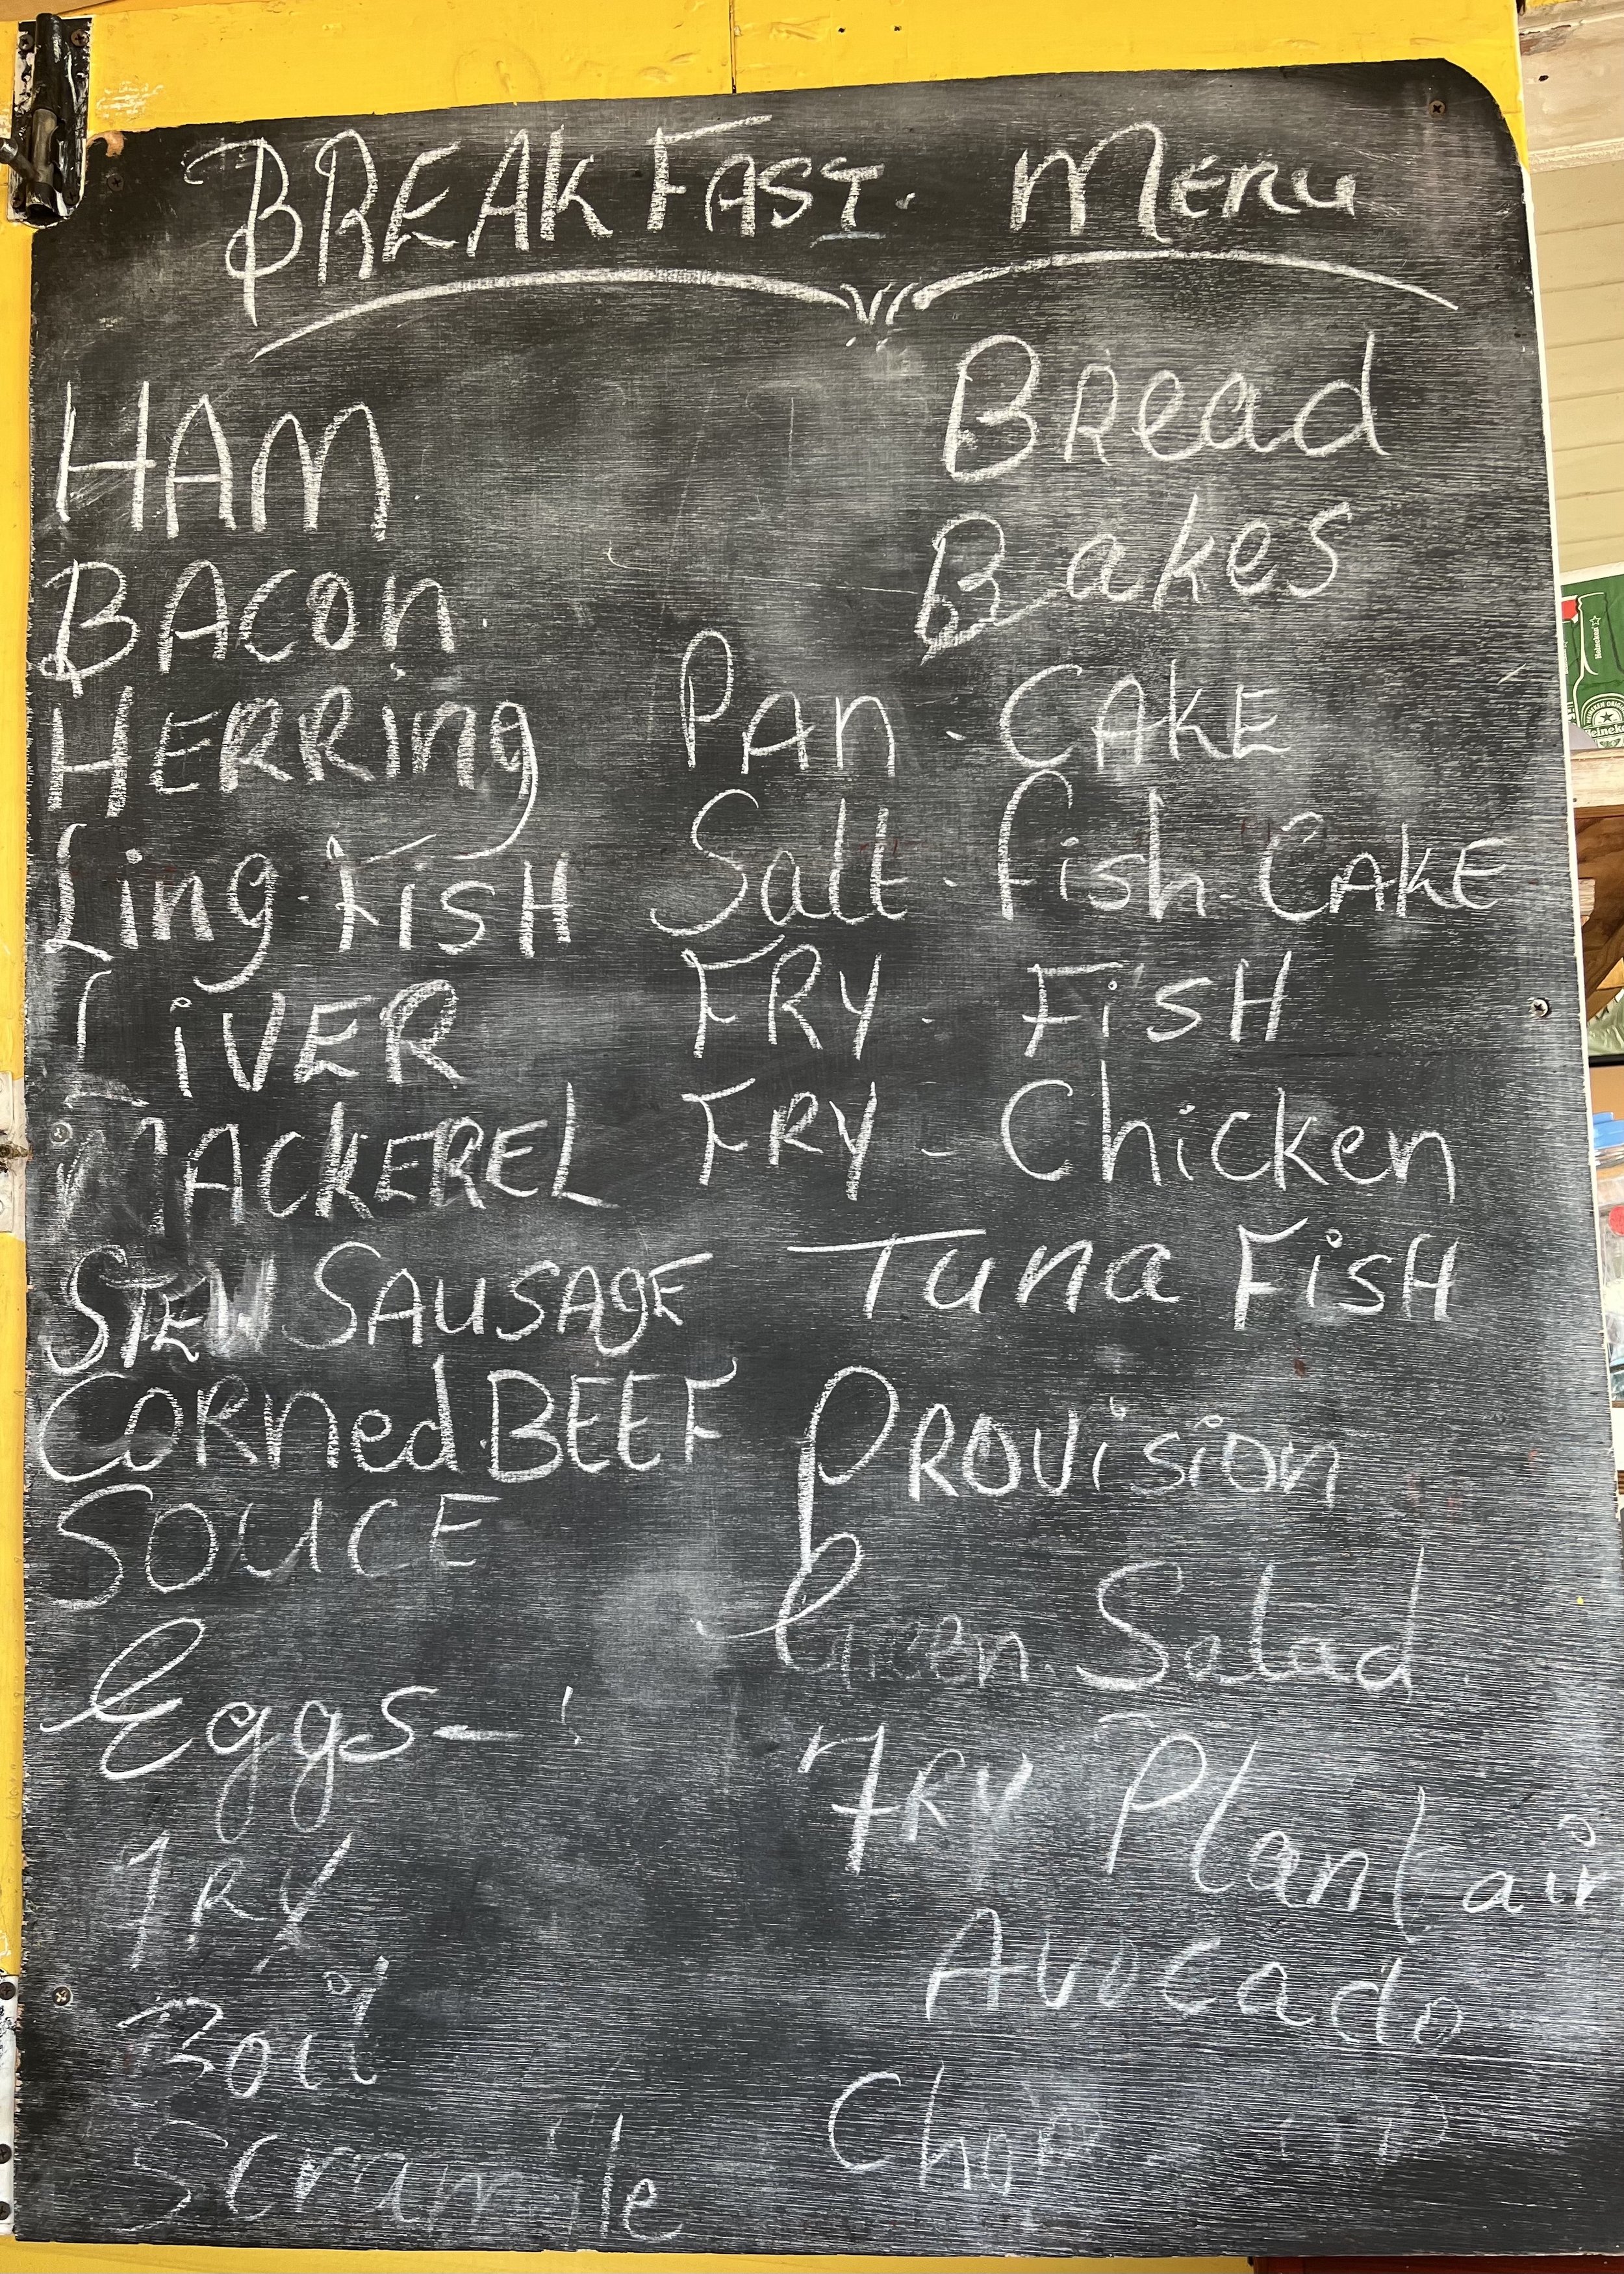 BREAKFAST. MENU
HAM
BACON.
HERRing
Ling. FiSH
LiVER
MACKEREL
STEW SAUSAgE
CORned.BEEF
SOUCE
Eggs—!
FRY
Boil
Scramble
Bread
Bakes
PAN - CAKE
Salt - Fish - CAKE
FRY - FiSH
FRY - Chicken
Tuna FiSH
PROVision
Green. Salad.
FRY Plantain
Avocado
Chop
Heineken